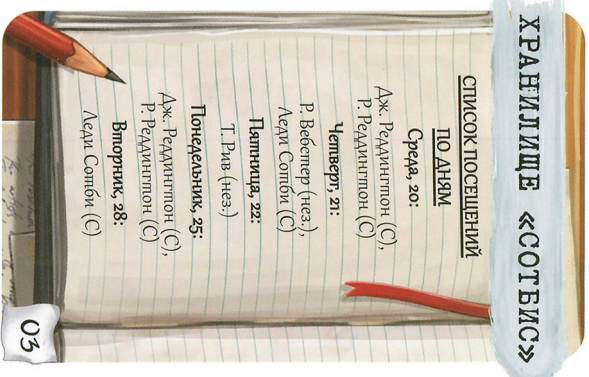 ХРАНИЛИЩЕ «СОТБИС»
СПИСОК ПОСЕЩЕНИЙ
ПО ДНЯМ
Среда, 20:
Дж. Реддингтон (С),
Р. Реддингтон (С)
Четверг, 21:
Р. Вебстер (нез.),
Леди Сотби (С)
Пятница, 22:
Т. Рив (нез.)
Понедельник, 25:
Дж. Реддингтон (С),
Р. Реддингтон (С)
Вторник, 28:
Леди Сотби (С)
03